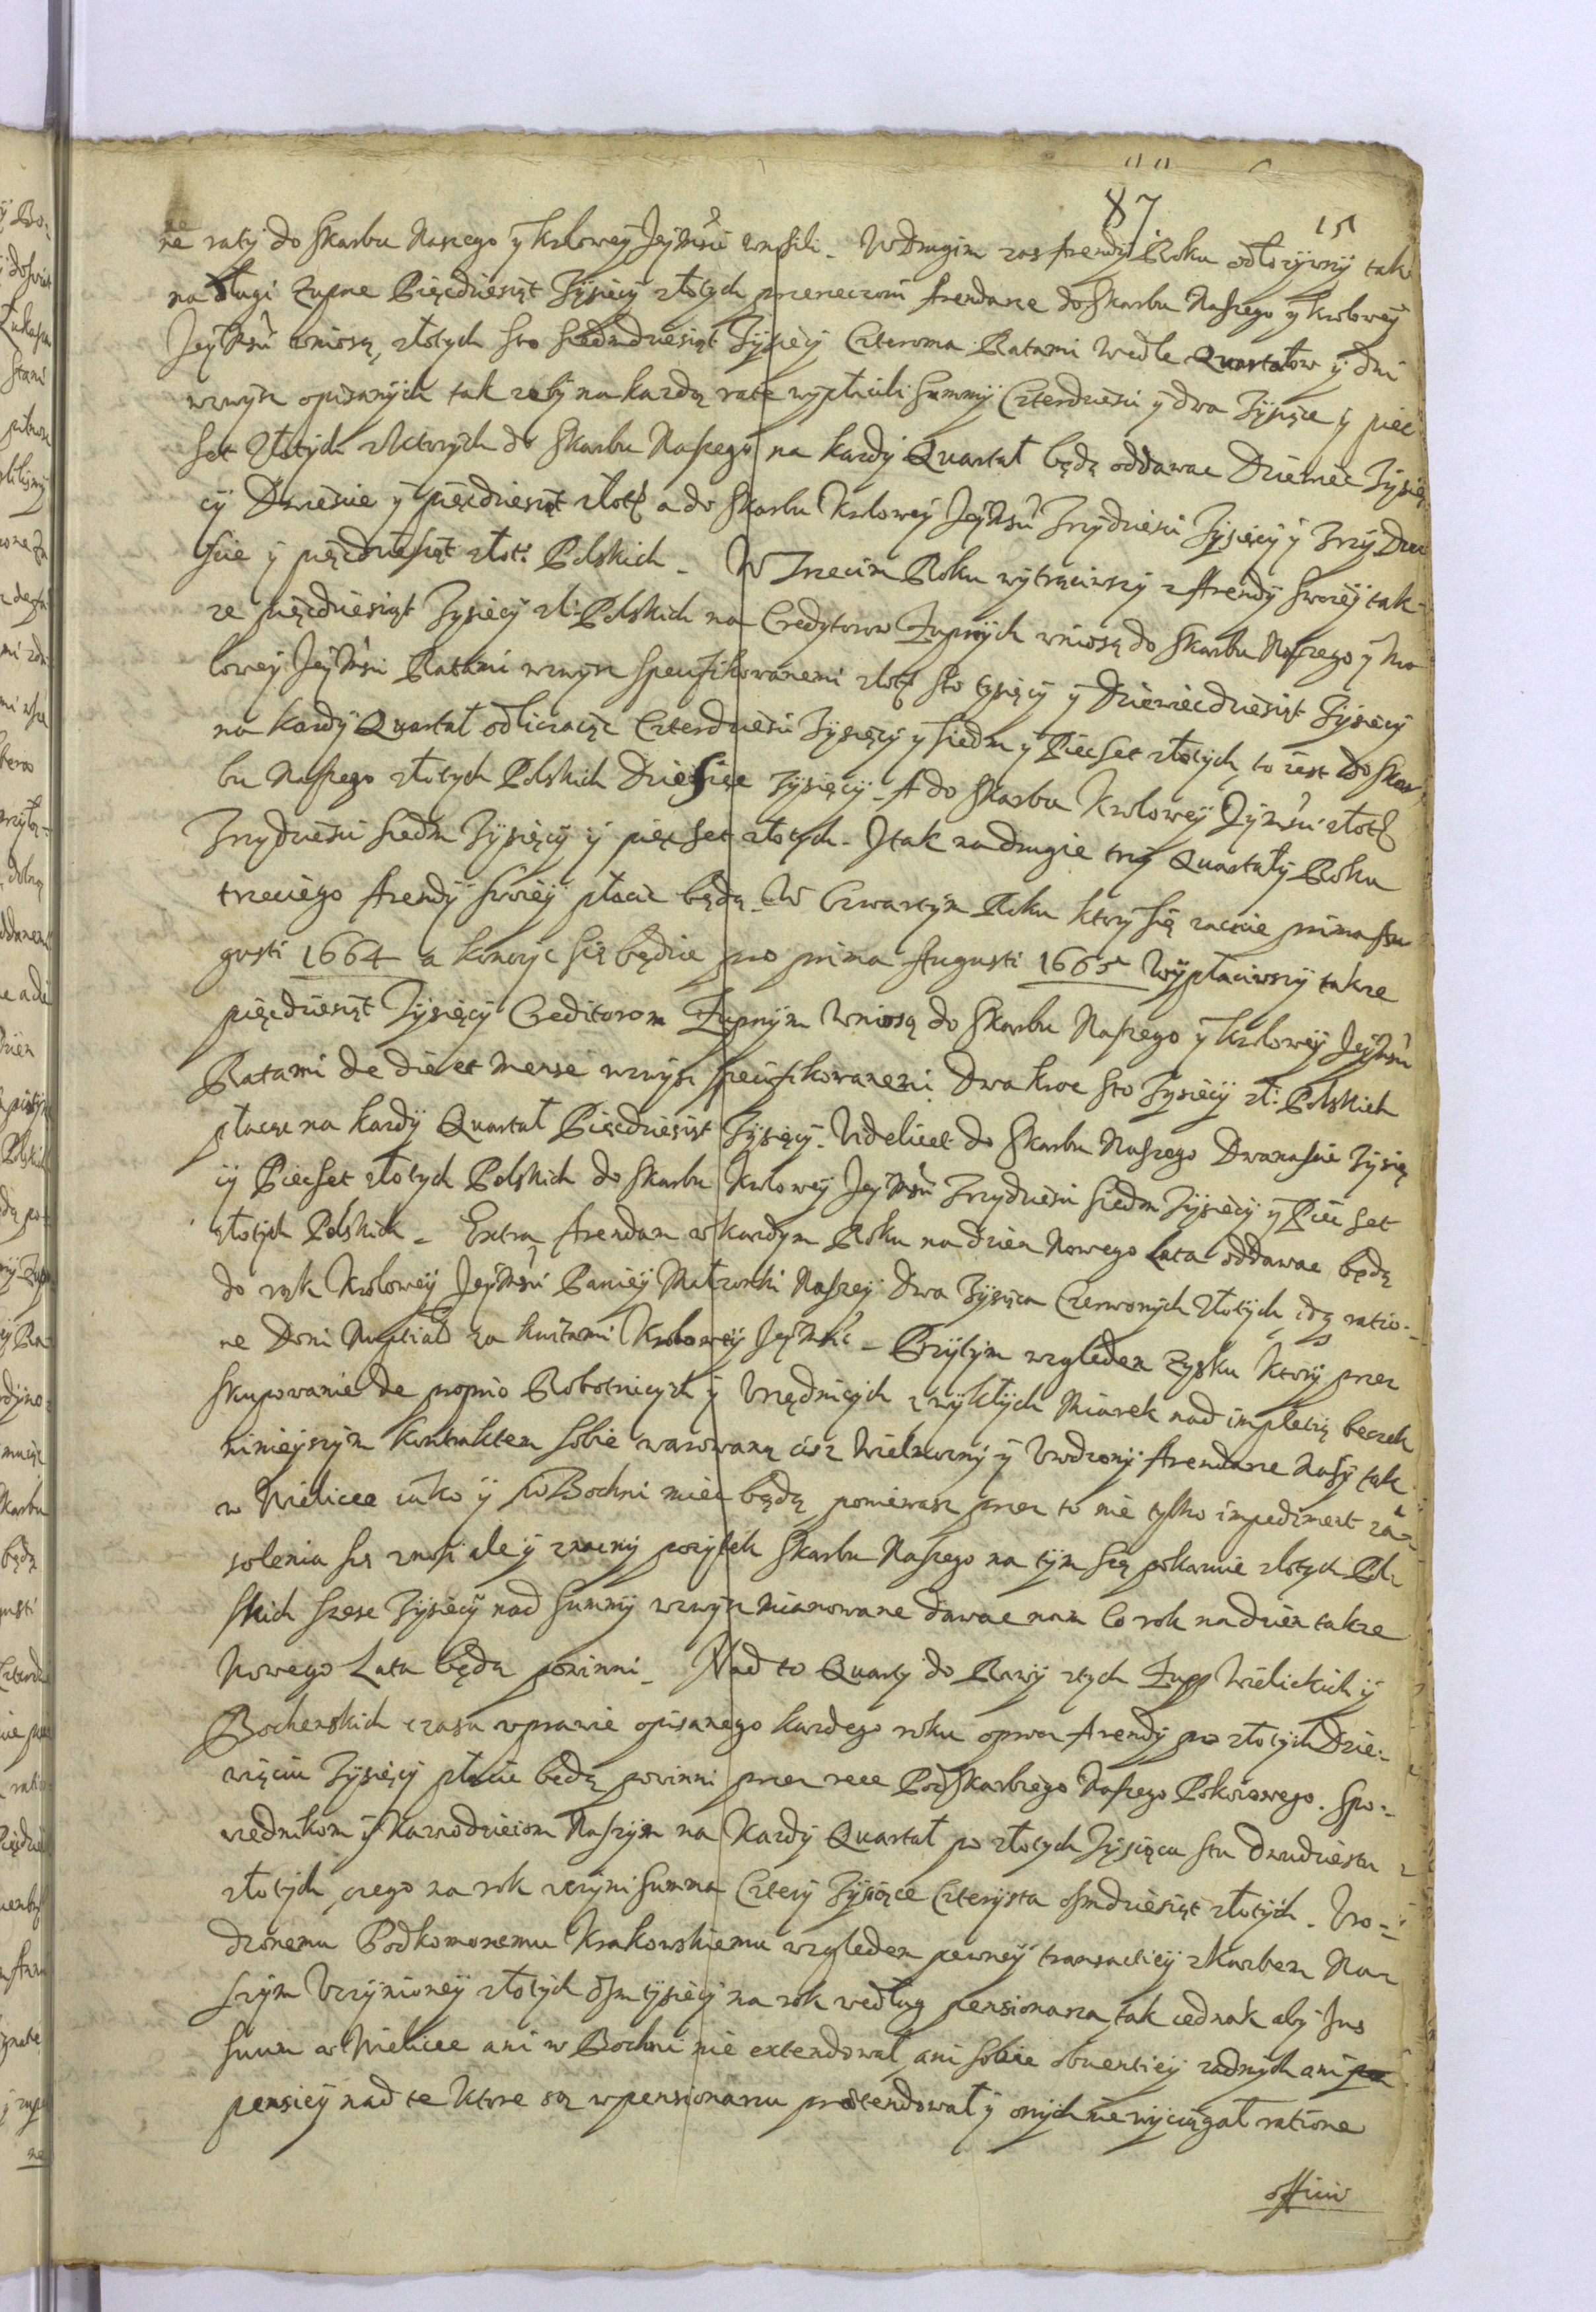 87 15
ne raty do Skarbu Naszego y Krolowey JeyMsći wnosili. W Drugim zas Arendy Roku odłozywszy takze
na Długi Zupne Pięcdziesiąt Tysięcy złotych przerzeczoni Arendarze do Skarbu Naszego y Krolowey
JeyMsći wniosą, złotych sto siedmdziesiąt Tysięcy Czterema Ratami wedle Quartałow y dni
wzwysz opisanych tak zeby na kazdą ratę wypłacili Summy Czterdziesci y dwa Tysiące y pięc
set złotych z ktorych do Skarbu Naszego na kazdy Quartał będą oddawac Dziewięc Tysię
cy Dwiescie y pięcdziesiąt złotych a do Skarbu Krolowey JeyMsći Trzydziesci Tysięcy y Trzy Dwie
scie y pięcdziesiąt złot: Polskich. W Trzecim Roku wytrąciwszy z Arendy swoiey tak
ze pięcdziesiąt Tysięcy zł: Polskich na Credytorow Zupnych wniosą do Skarbu Naszego y Kro
lowey JeyMsći Ratami wzwysz specifikowanemi złot: sto tysięcy y Dziewięcdziesiąt Tysięcy
na kazdy Quartał odliczaiąc Czterdziesci Tysięcy y siedm y Pięcset złotych, to iest do Skar
bu Naszego złotych Polskich Dziesięc Tysięcy. A do Skarbu Krolowey JeyMsći złot:
Trzydziesci siedm Tysięcy y pięc set złotych. I tak na drugie trzy Quartały Roku
trzeciego Arendy swoiey płacic będą. W Czwartym Roku ktory się zacznie prima Au
gusti 1664 a konczyc się będzie pro prima Augusti 1665 wypłaciwszy takze
pięcdziesiąt Tysięcy Creditorom Zupnym wniosą do Skarbu Naszego y Krolowey JeyMsći
Ratami de die et mense wzwysz specifikowanemi Dwakroc sto Tysięcy zł: Polskich
płacąc na kazdy Quartał Pięcdziesiąt Tysięcy. Videlicet do Skarbu Naszego Dwanascie Tysię
cy Pięcset złotych Polskich do Skarbu Krolowey JeyMsći Trzydziesci siedm Tysięcy y Pięc set
złotych Polskich. Extra Arendam w kazdym Roku na dzien Nowego Lata oddawac będą
do rąk Krolowey JeyMsći Paniey Małzonki Naszey Dwa Tysiąca Czerwonych złotych idą ratio
ne Doni Nuptial za kwitami Krolowey JeyMsći. Przytym względem zysku ktory przez
skupowanie de proprio Robotniczych y Urzędniczych zwykłych Miarek nad impletią beczek
ninieyszym kontraktem sobie warowaną ciz Wielmozny y Urodzony Arendarze Naszy tak
w Wieliczce iako y w Bochni miec będą poniewasz przez to nie tylko impediment za
solenia się znosi ale y znaczny pozytek Skarbu Naszego na tym się pokazuie złotych Pol
skich szesc Tysięcy nad Summy wzwysz mianowane dawac nam co rok na dzien takze
Nowego Lata będą powinni. Nad to Quarty do Rawy z tych Zupp Wielickich y
Bochenskich czasu w prawie opisanego kazdego roku oprocz Arendy po złotych Dzie
więciu Tysięcy płacic będą powinni przez ręce Podskarbiego Naszego Pokoiowego. Spo
wiednikom y Kaznodzieiom Naszym na kazdy Quartał po złotych Tysiącu stu dwudziestu
złotych, czego na rok uczyni summa Cztery Tysiące Czterysta osmdziesiąt złotych. Uro
dzonemu Podkomorzemu Krakowskiemu względem pewney transactiey z Skarbem Na
szym Uczynioney złotych osm tysięcy na rok według pensionarza, tak iednak aby Ius
suum w Wieliczce ani w Bochni nie extendował, ani sobie obuentiey zadnych ani
pensiey nad te ktore są w pensionarzu praetendował y onych nie wyciągał ratione
officii